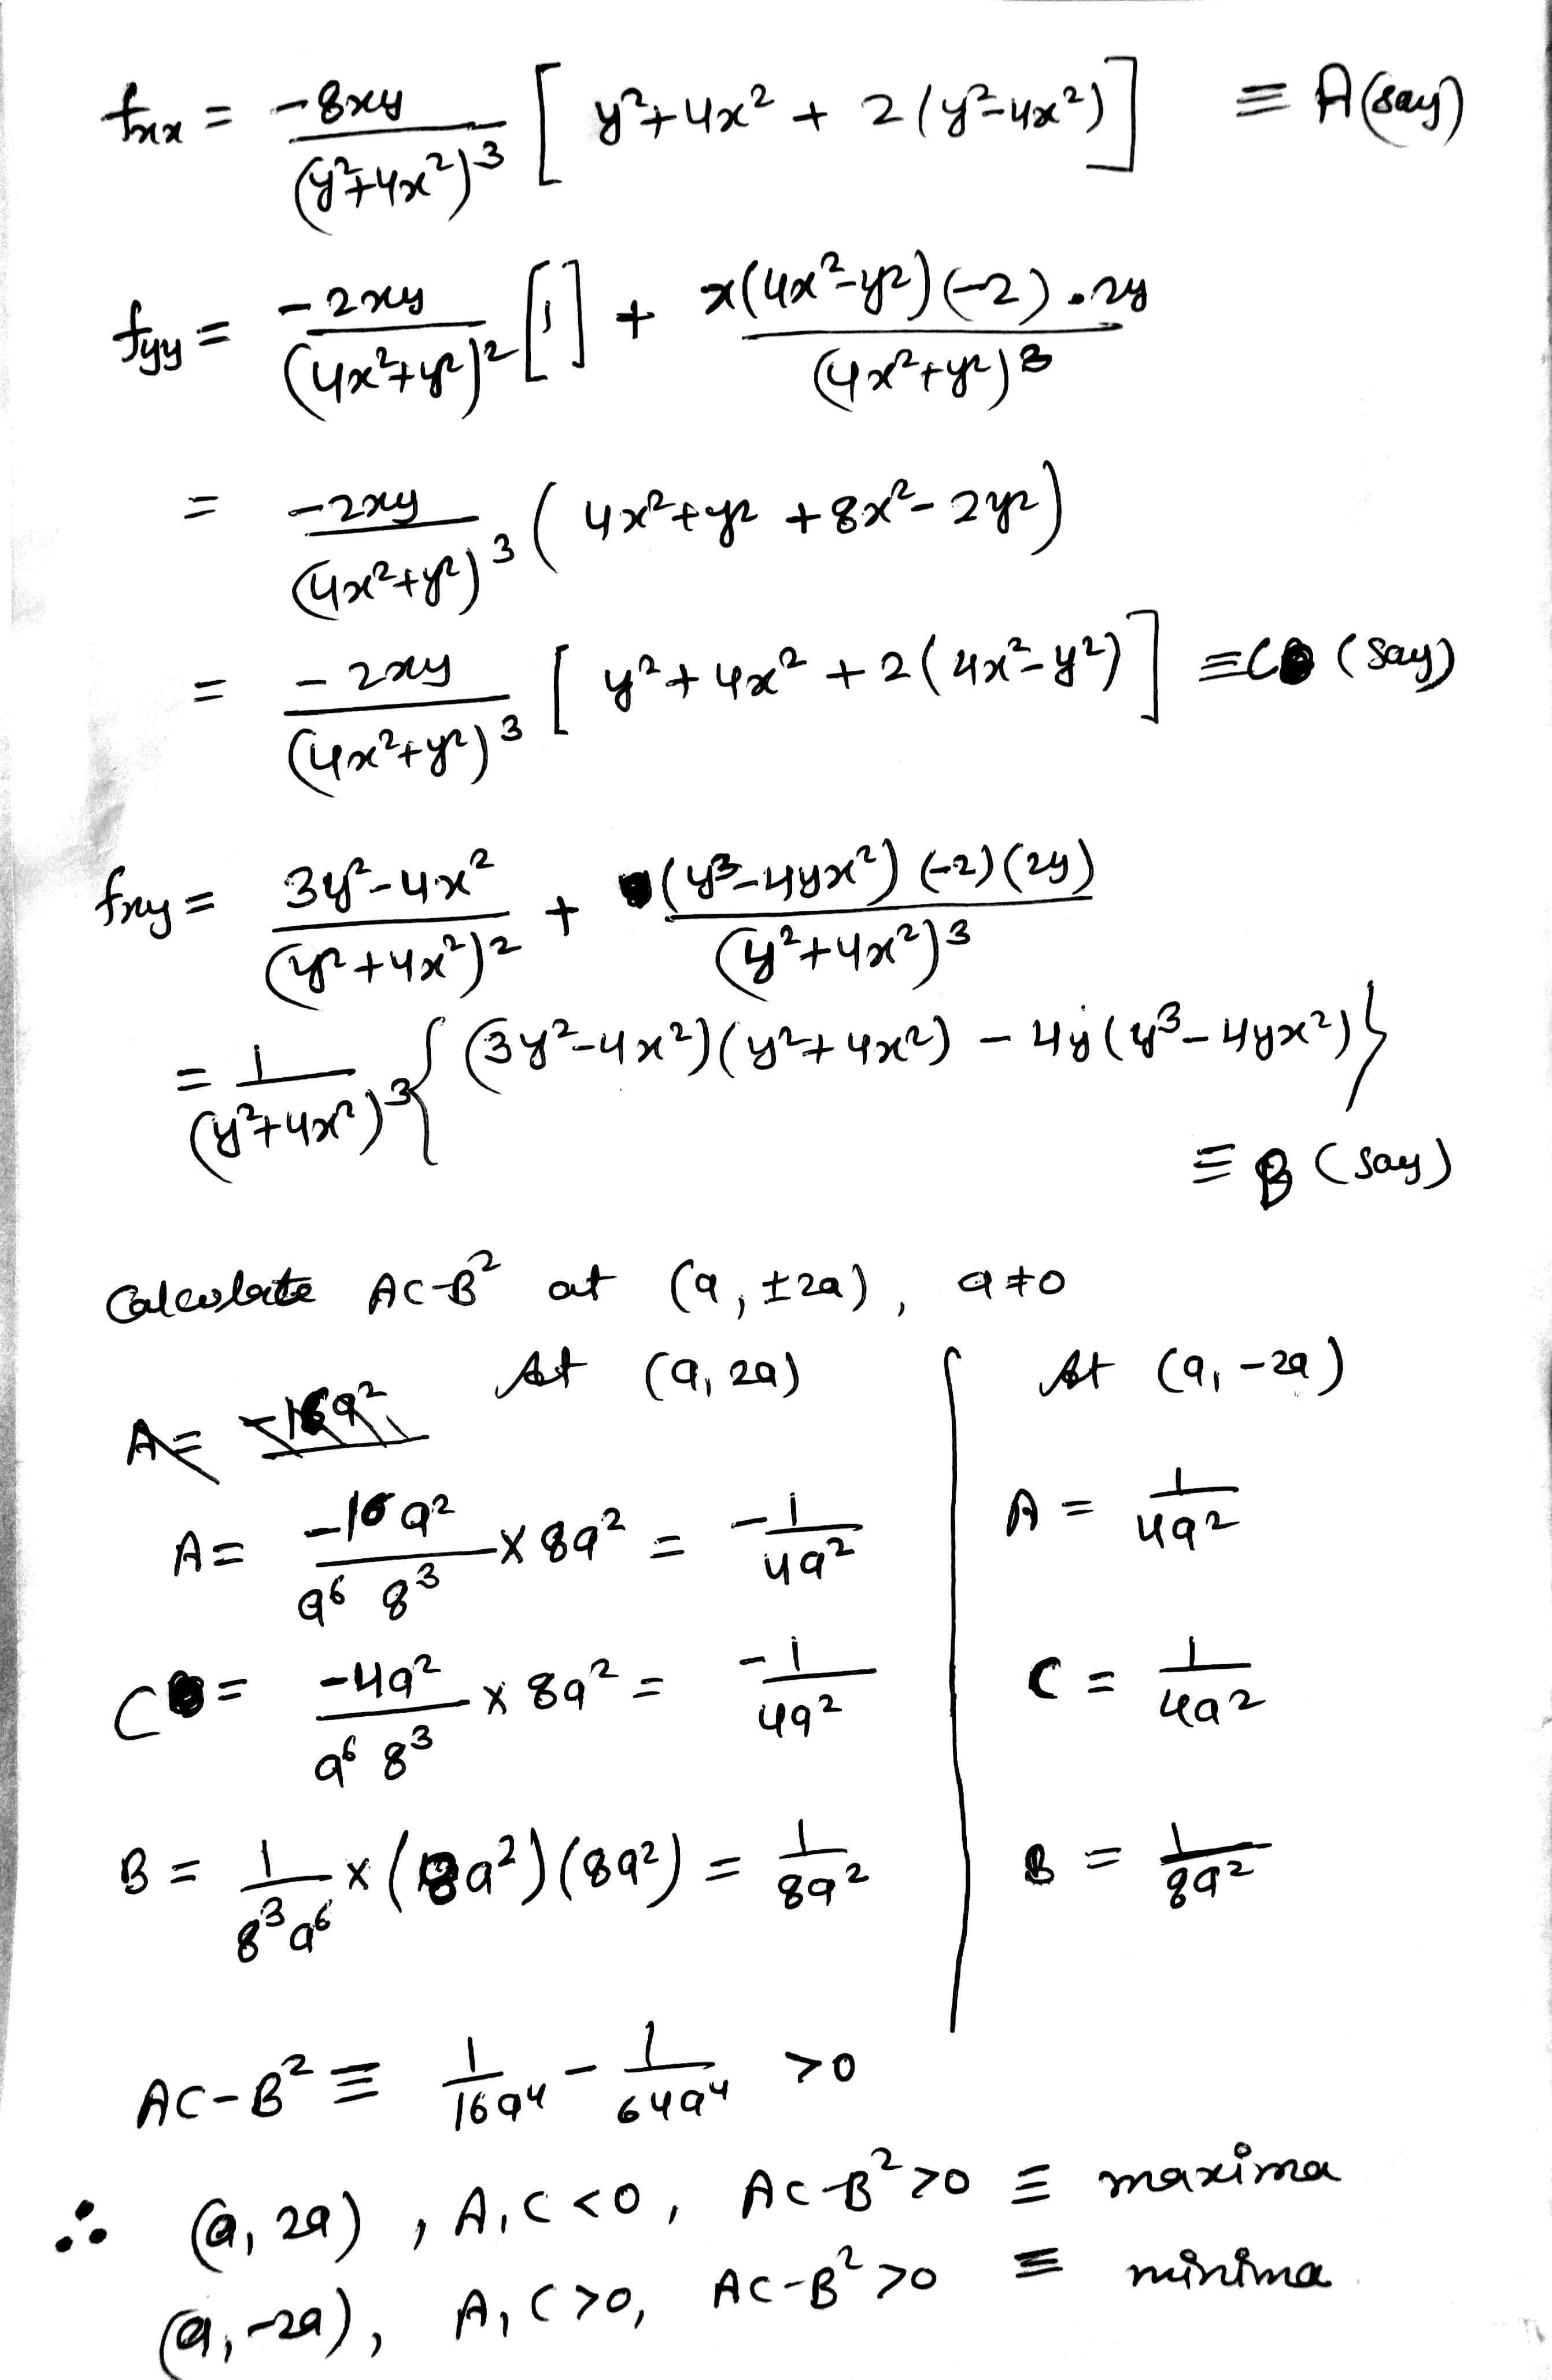 fxx = -8xy/(y²+4x²)³ [ y²+4x² + 2(y²-4x²) ] ≡ A (say)
fyy = -2xy/(4x²+y²)² [1] + x(4x²-y²)(-2).2y/(4x²+y²)³
= -2xy/(4x²+y²)³ ( 4x²+y² + 8x² - 2y² )
= -2xy/(4x²+y²)³ [ y²+4x² + 2(4x²-y²) ] ≡ C (say)
fxy = 3y²-4x²/(y²+4x²)² + (y³-4yx²)(-2)(2y)/(y²+4x²)³
= 1/(y²+4x²)³ { (3y²-4x²)(y²+4x²) - 4y(y³-4yx²) }
≡ B (say)
Calculate AC-B² at (a, ±2a), a≠0
At (a, 2a)
A = -16a²
A = -16a²/a⁶ 8³ × 8a² = -1/4a²
C = -4a²/a⁶ 8³ × 8a² = -1/4a²
B = 1/8³a⁶ × (8a²)(8a²) = 1/8a²
At (a, -2a)
A = 1/4a²
C = 1/4a²
B = 1/8a²
AC-B² ≡ 1/16a⁴ - 1/64a⁴ >0
∴ (a, 2a), A, C <0, AC-B² >0 ≡ maxima
(a, -2a), A, C >0, AC-B² >0 ≡ minima